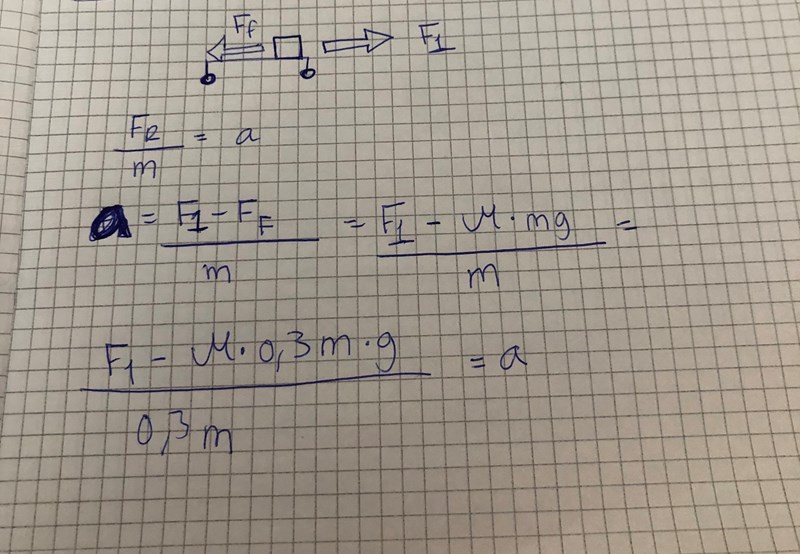 Ff F1
FR/m = a
a = F1 - FF / m = F1 - μ · mg / m =
F1 - μ · 0,3m · g / 0,3m = a